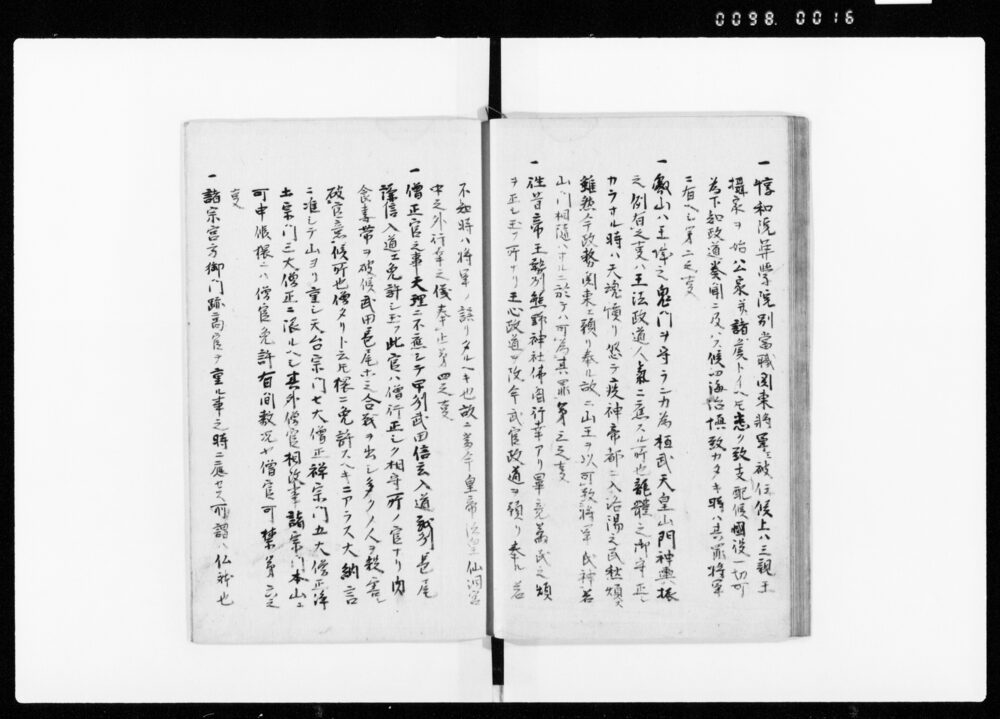 0098. 0016
一 惇和院弉学院別當職関東将軍ニ被任候上ハ三親王
摂家ヲ始公家并諸侯トイヘモ悉ク致支配候國役一切可
為下知政道奏聞ニ及ハス候四海治慎致カタキ時ハ其罪将軍
ニ有ヘシ第二之叓
一 叡山ハ王城之鬼門ヲ守ランカ為桓武天皇山門神輿振
之例有之叓ハ王法政道人氣ニ應スル所也龍體之御守正シ
カラサル時ハ天魂憤リ怒テ疫神帝都ニ入洛陽之民愁煩ス
雖然今政務関東エ預リ奉ル故ニ山王ヲ以可致将軍民神若
山門相随ハサルニ於テハ可為其罪第三之叓
一 往昔帝王敷列熊野神社佛閣行幸アリ畢竟萬民之煩
ヲ正シ玉フ所ナリ王心政道ヲ改今武官政道ヲ預リ奉ル若
不知時ハ将軍ノ誤リタルヘキ也故ニ當今皇帝法皇仙洞宮
中之外行幸之儀奉止第四之叓
一 僧正官之事天理ニ不應シテ甲列武田信玄入道越列長尾
謙信入道エ免許シ玉フ此官ハ僧行正シク相守所ノ官ナリ肉
食妻帯ヲ破候武田長尾ホニ合戦ヲ出シ多クノ人ヲ殺害シ
破官意候所也僧タリト云モ猥ニ免許スヘキニアラス大納言
ニ准シテ山ヨリ重シ天台宗門七大僧正禅宗門五大僧正浄
土宗門三大僧正ニ限ルヘシ其外僧官相改事諸宗門本山エ
可申渡猥ニハ僧官免許有間敷況ヤ僧官可禁第五之
叓
一 諸宗宮方御門跡高官ヲ重ル事之時ニ應セス所謂ハ仏祈也